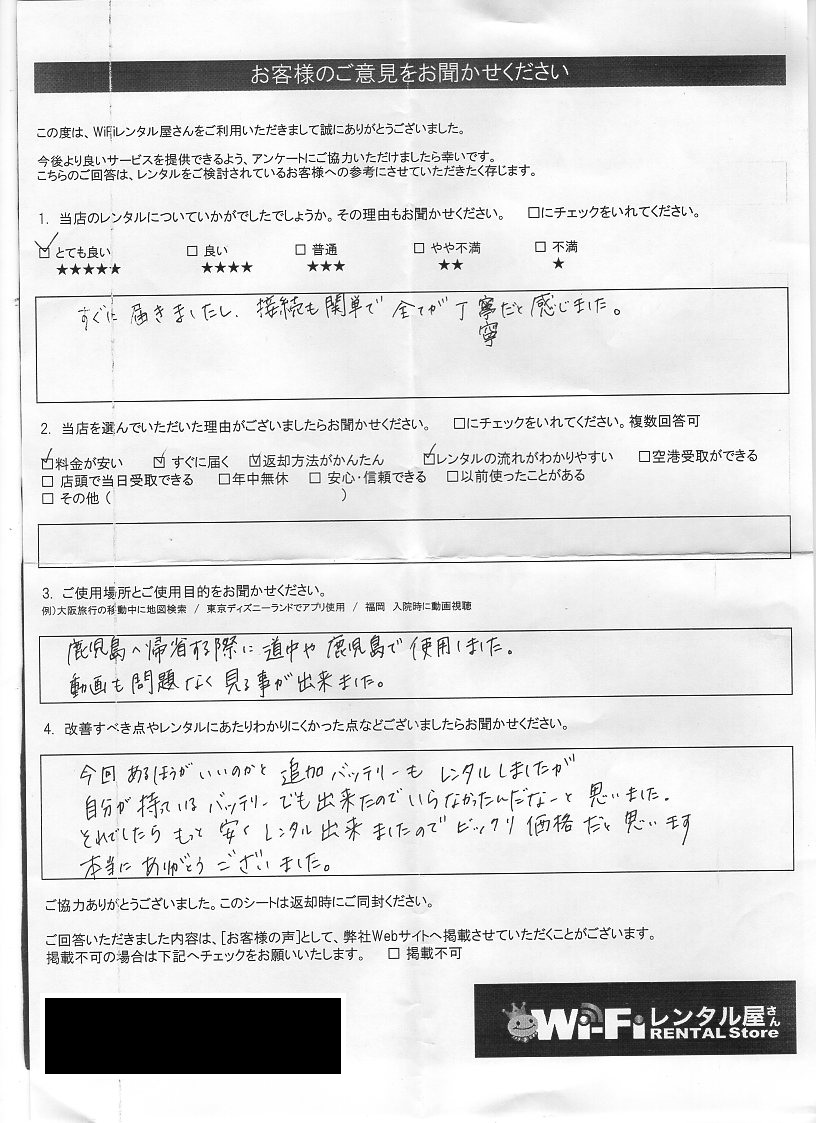 お客様のご意見をお聞かせください
この度は、WiFiレンタル屋さんをご利用いただきまして誠にありがとうございました。
今後より良いサービスを提供できるよう、アンケートにご協力いただけましたら幸いです。
こちらのご回答は、レンタルをご検討されているお客様への参考にさせていただきたく存じます。
1. 当店のレンタルについていかがでしたでしょうか。その理由もお聞かせください。 □にチェックをいれてください。
☑とても良い □ 良い □ 普通 □ やや不満 □ 不満
★★★★★ ★★★★ ★★★ ★★ ★
すぐに届きましたし、接続も関単で全てが丁寧だと感じました。
寧
2. 当店を選んでいただいた理由がございましたらお聞かせください。 □にチェックをいれてください。複数回答可
☑料金が安い ☑ すぐに届く ☑返却方法がかんたん ☑レンタルの流れがわかりやすい □空港受取ができる
□ 店頭で当日受取できる □年中無休 □ 安心・信頼できる □以前使ったことがある
□ その他( )
3. ご使用場所とご使用目的をお聞かせください。
例)大阪旅行の移動中に地図検索 / 東京ディズニーランドでアプリ使用 / 福岡 入院時に動画視聴
鹿児島へ帰省する際に道中や鹿児島で使用しました。
動画も問題なく見る事が出来ました。
4. 改善すべき点やレンタルにあたりわかりにくかった点などございましたらお聞かせください。
今回あるほうがいいのかと追加バッテリーもレンタルしましたが
自分が持っているバッテリーでも出来たのでいらなかったんだなーと思いました。
それでしたらもっと安くレンタル出来ましたのでビックリ価格だと思います
本当にありがとうございました。
ご協力ありがとうございました。このシートは返却時にご同封ください。
ご回答いただきました内容は、[お客様の声]として、弊社Webサイトへ掲載させていただくことがございます。
掲載不可の場合は下記へチェックをお願いいたします。 □ 掲載不可
Wi-Fiレンタル屋さん
RENTAL Store